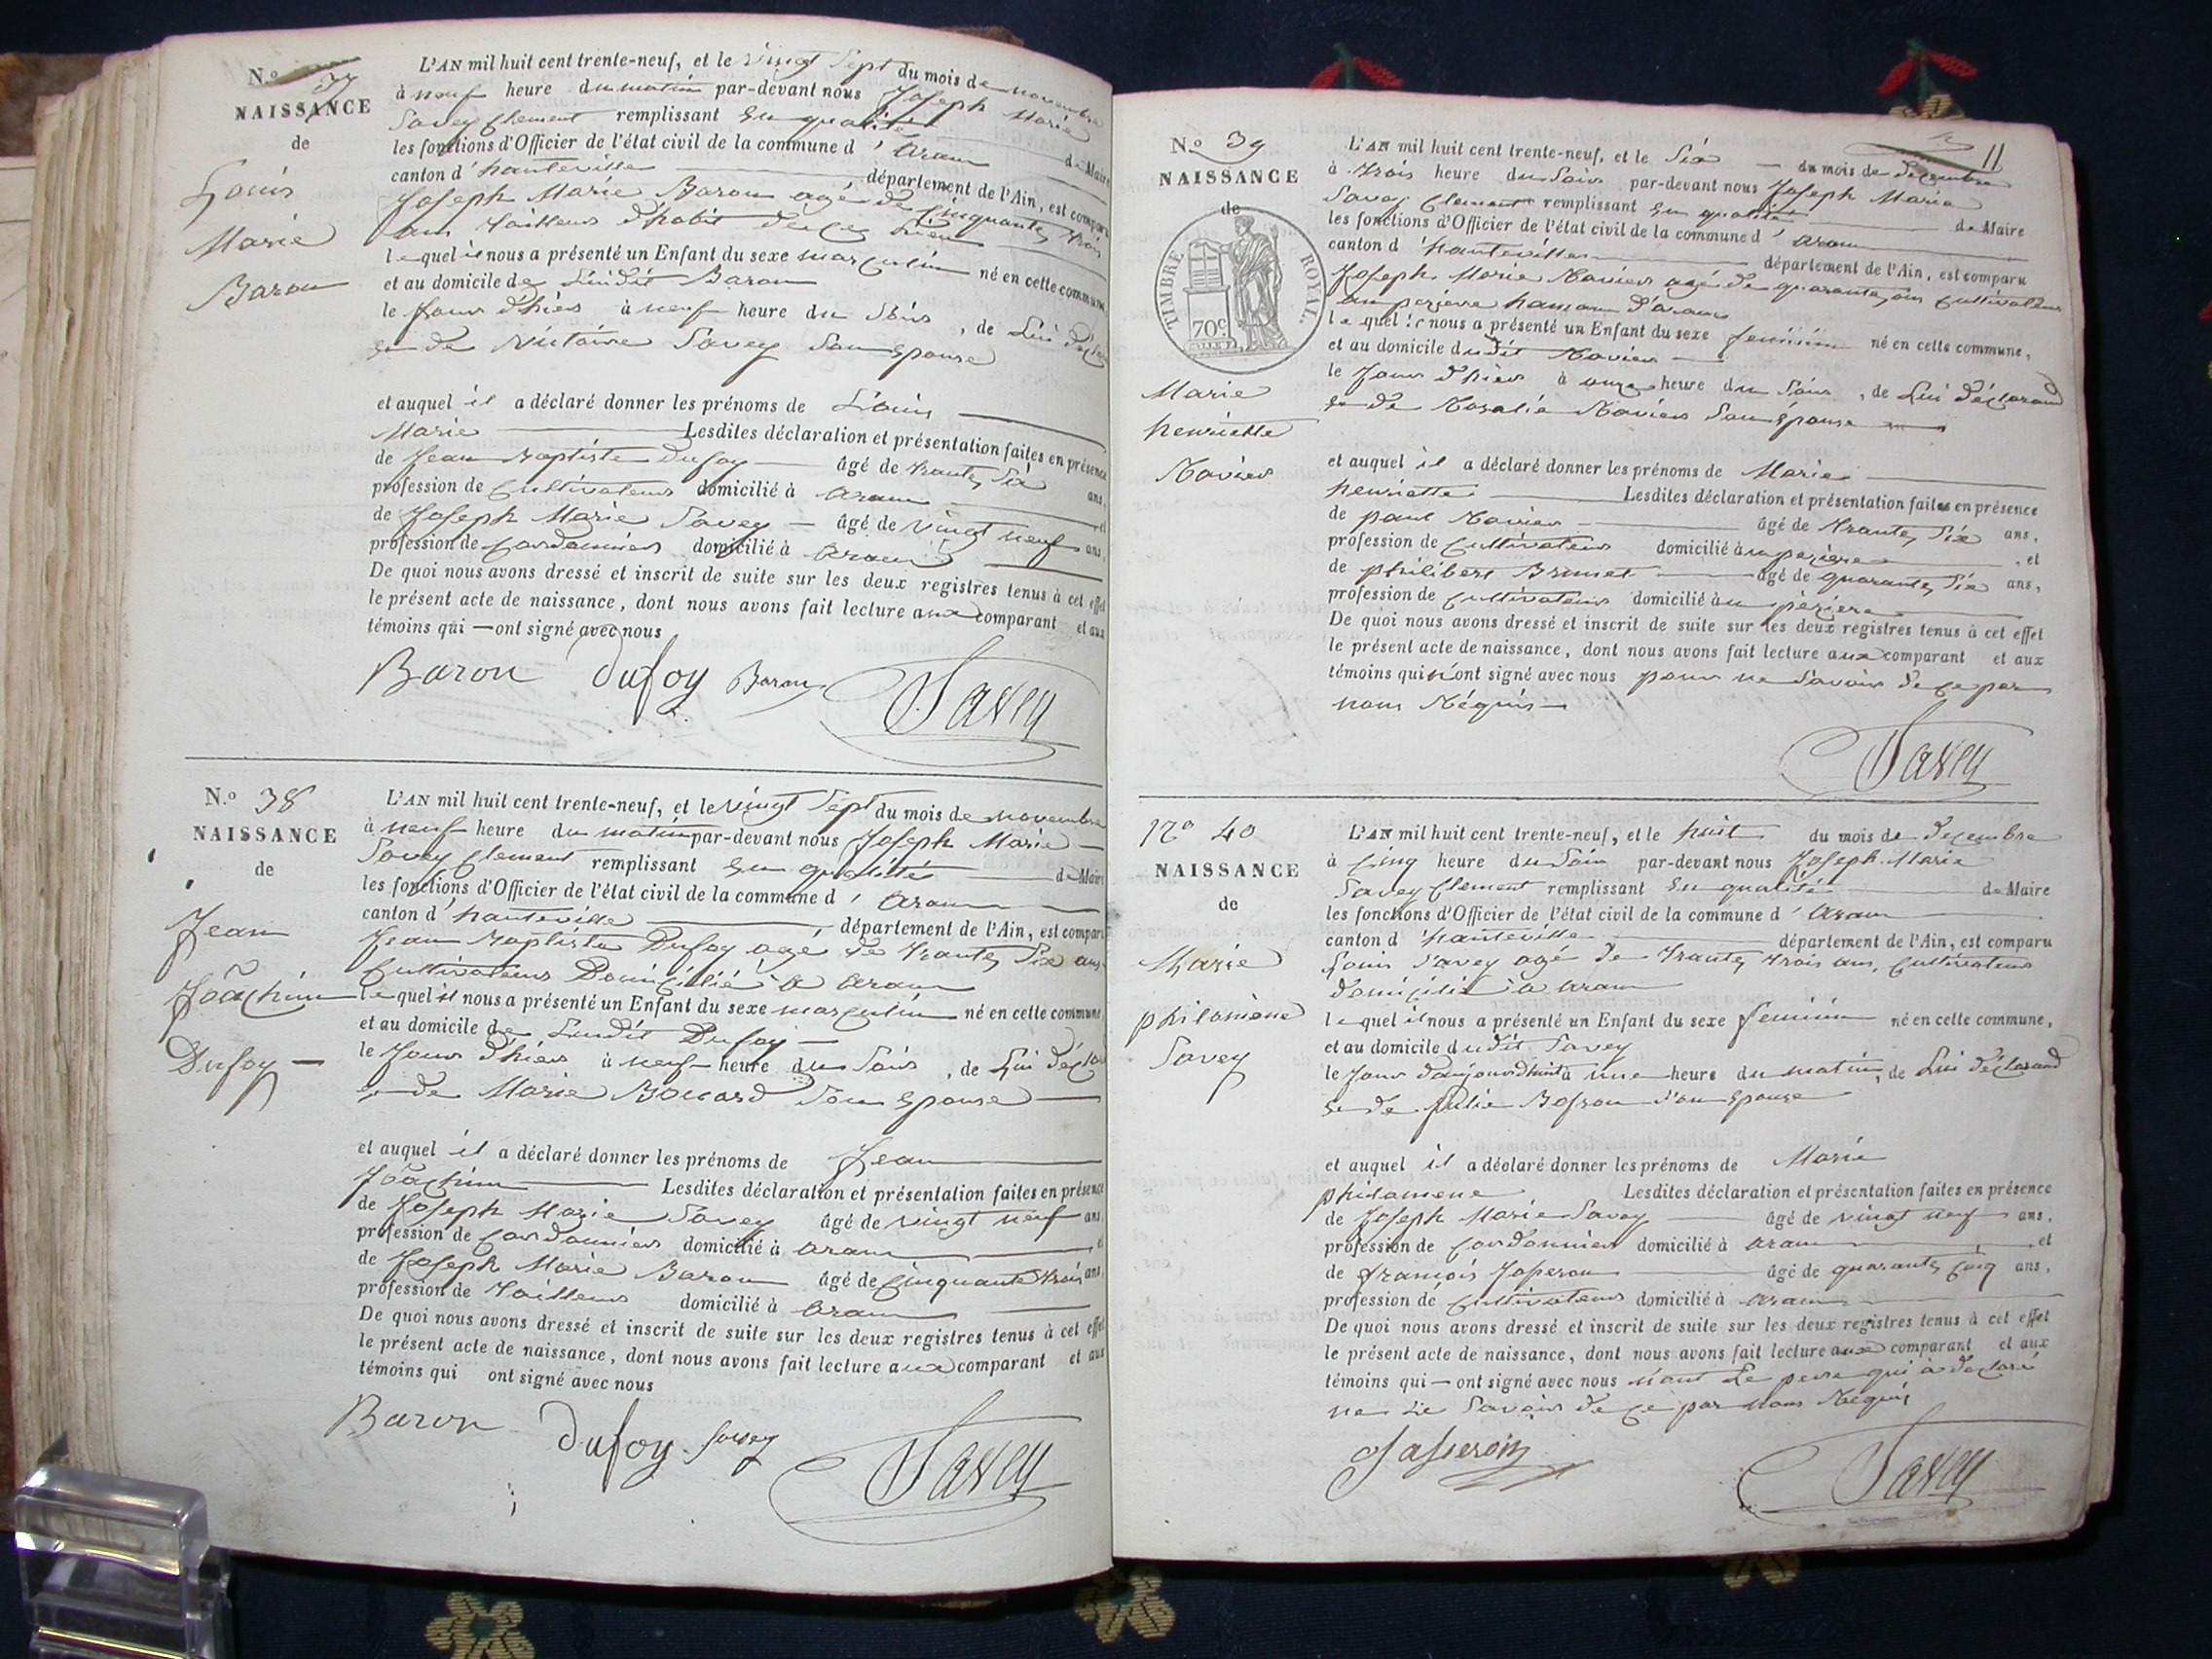 N.o 37
NAISSANCE
de
Louis
Marie
Baron
L'AN mil huit cent trente-neuf, et le vingt Sept du mois de novembre
à neuf heure du matin par-devant nous Joseph Marie
Savey Clement remplissant En qualité de Maire
les fonctions d'Officier de l'état civil de la commune d' aran
canton d' hauteville département de l'Ain, est comparu
Joseph Marie Baron agé de Cinquante trois
ans tailleur d'habit
lequel il nous a présenté un Enfant du sexe masculin né en cette commune,
et au domicile de Baron
le Jour d'hier à neuf heure du Soir, de Lui
et de Savey Son Epouse
et auquel il a déclaré donner les prénoms de Louis
Marie Lesdites déclaration et présentation faites en présence
de Jean Baptiste Dufoy âgé de trante Six ans,
profession de Cultivateur domicilié à aran et
de Joseph Marie Savey âgé de vingt neuf ans,
profession de Cordonnier domicilié à aran
De quoi nous avons dressé et inscrit de suite sur les deux registres tenus à cet effet
le présent acte de naissance, dont nous avons fait lecture aux comparant et aux
témoins qui ont signé avec nous
Baron Dufoy Baron Savey
N.o 38
NAISSANCE
de
Jean
Joachim
Dufoy
L'AN mil huit cent trente-neuf, et le vingt Sept du mois de novembre
à neuf heure du matin par-devant nous Joseph Marie
Savey Clement remplissant En qualité de Maire
les fonctions d'Officier de l'état civil de la commune d' aran
canton d' hauteville département de l'Ain, est comparu
Jean Baptiste Dufoy agé de trante Six ans
Cultivateur Domicilié à aran
lequel il nous a présenté un Enfant du sexe masculin né en cette commune,
et au domicile de Dufoy
le Jour d'hier à neuf heure du Soir, de Lui
et de Marie Bouard Son Epouse
et auquel il a déclaré donner les prénoms de Jean
Joachim Lesdites déclaration et présentation faites en présence
de Joseph Marie Savey âgé de vingt neuf ans,
profession de Cordonnier domicilié à aran et
de Joseph Marie Baron âgé de Cinquante trois ans,
profession de tailleur domicilié à aran
De quoi nous avons dressé et inscrit de suite sur les deux registres tenus à cet effet
le présent acte de naissance, dont nous avons fait lecture aux comparant et aux
témoins qui ont signé avec nous
Baron Dufoy Savey Savey
11
N.o 39
NAISSANCE
de
TIMBRE ROYAL.
70c
Marie
henriette
L'AN mil huit cent trente-neuf, et le Six du mois de Decembre
à trois heure du Soir par-devant nous Joseph Marie
Savey Clement remplissant En qualité de Maire
les fonctions d'Officier de l'état civil de la commune d' aran
canton d' hauteville département de l'Ain, est comparu
Joseph Marie agé de quarante ans Cultivateur
hameau d'aran
lequel il nous a présenté un Enfant du sexe feminin né en cette commune,
et au domicile dudit
le Jour d'hier à onze heure du Soir, de Lui déclarand
et de Rosalie Son Epouse
et auquel il a déclaré donner les prénoms de Marie
henriette Lesdites déclaration et présentation faites en présence
de paul âgé de trante Six ans,
profession de Cultivateur domicilié à, et
de philibert Brunet âgé de quarante Six ans,
profession de Cultivateur domicilié à
De quoi nous avons dressé et inscrit de suite sur les deux registres tenus à cet effet
le présent acte de naissance, dont nous avons fait lecture aux comparant et aux
témoins qui n'ont signé avec nous pour ne Savoir de ce par
nous Réquis
Savey
No 40
NAISSANCE
de
Marie
philomène
Savey
L'AN mil huit cent trente-neuf, et le huit du mois de Decembre
à Cinq heure du Soir par-devant nous Joseph Marie
Savey Clement remplissant En qualité de Maire
les fonctions d'Officier de l'état civil de la commune d' aran
canton d' hauteville département de l'Ain, est comparu
Louis Savey agé de trante trois ans, Cultivateur
domicilié à aran
lequel il nous a présenté un Enfant du sexe feminin né en cette commune,
et au domicile dudit Savey
le Jour d'aujourdhui à une heure du matin, de Lui déclarand
et de Julie Son Epouse
et auquel il a déclaré donner les prénoms de Marie
philomene Lesdites déclaration et présentation faites en présence
de Joseph Marie Savey âgé de vingt neuf ans,
profession de Cordonnier domicilié à aran et
de françois Josperon âgé de quarante Cinq ans,
profession de Cultivateur domicilié à aran
De quoi nous avons dressé et inscrit de suite sur les deux registres tenus à cet effet
le présent acte de naissance, dont nous avons fait lecture aux comparant et aux
témoins qui ont signé avec nous Le pere qui à declaré
ne Le Savoir de ce par Nous Réquis
Savey